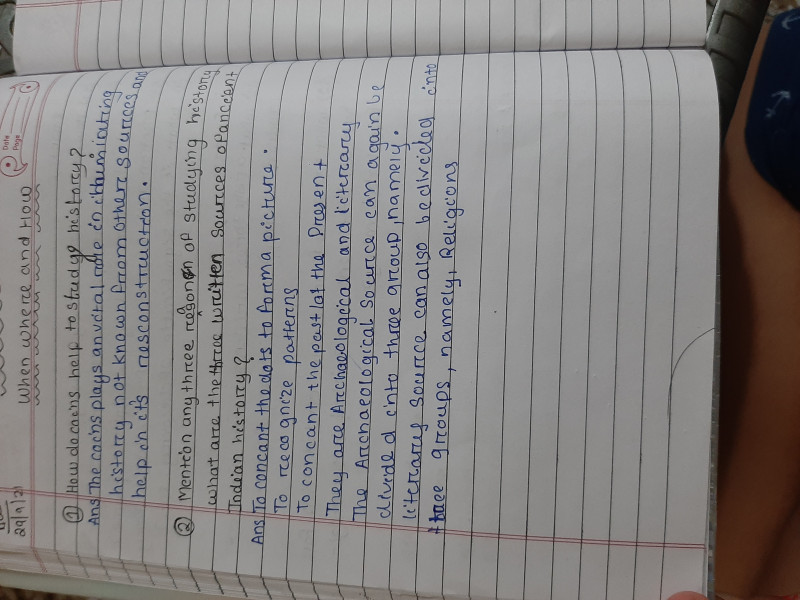 Date
Page
29/9/21
When where and How
① How do coins help to study history?
Ans The coins plays an vital role in illuminating
history not known from other sources and
help in its resconstruction.
② Mention any three region of studying history
what are the three written sources of ancient
Indian history?
Ans To concant the dots to form a picture.
To recognize patterns
To concant the past lot the Present
They are Archaeological and literary
The Archaeological Source can again be
divided into three group namely.
literary source can also be divided into
thee groups, namely, Religions